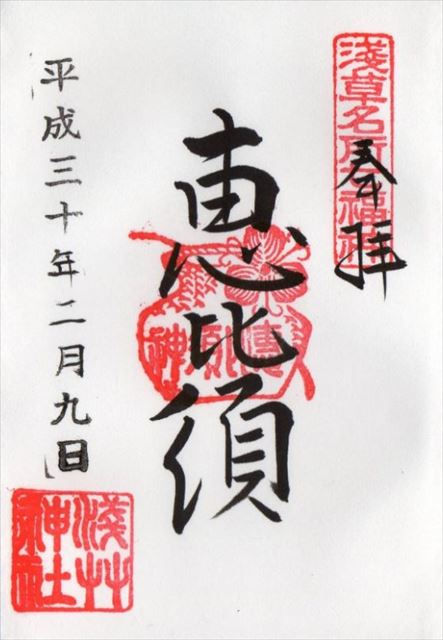 淺草名所七福神
奉拝
恵比須
平成三十年二月九日
淺草
神社